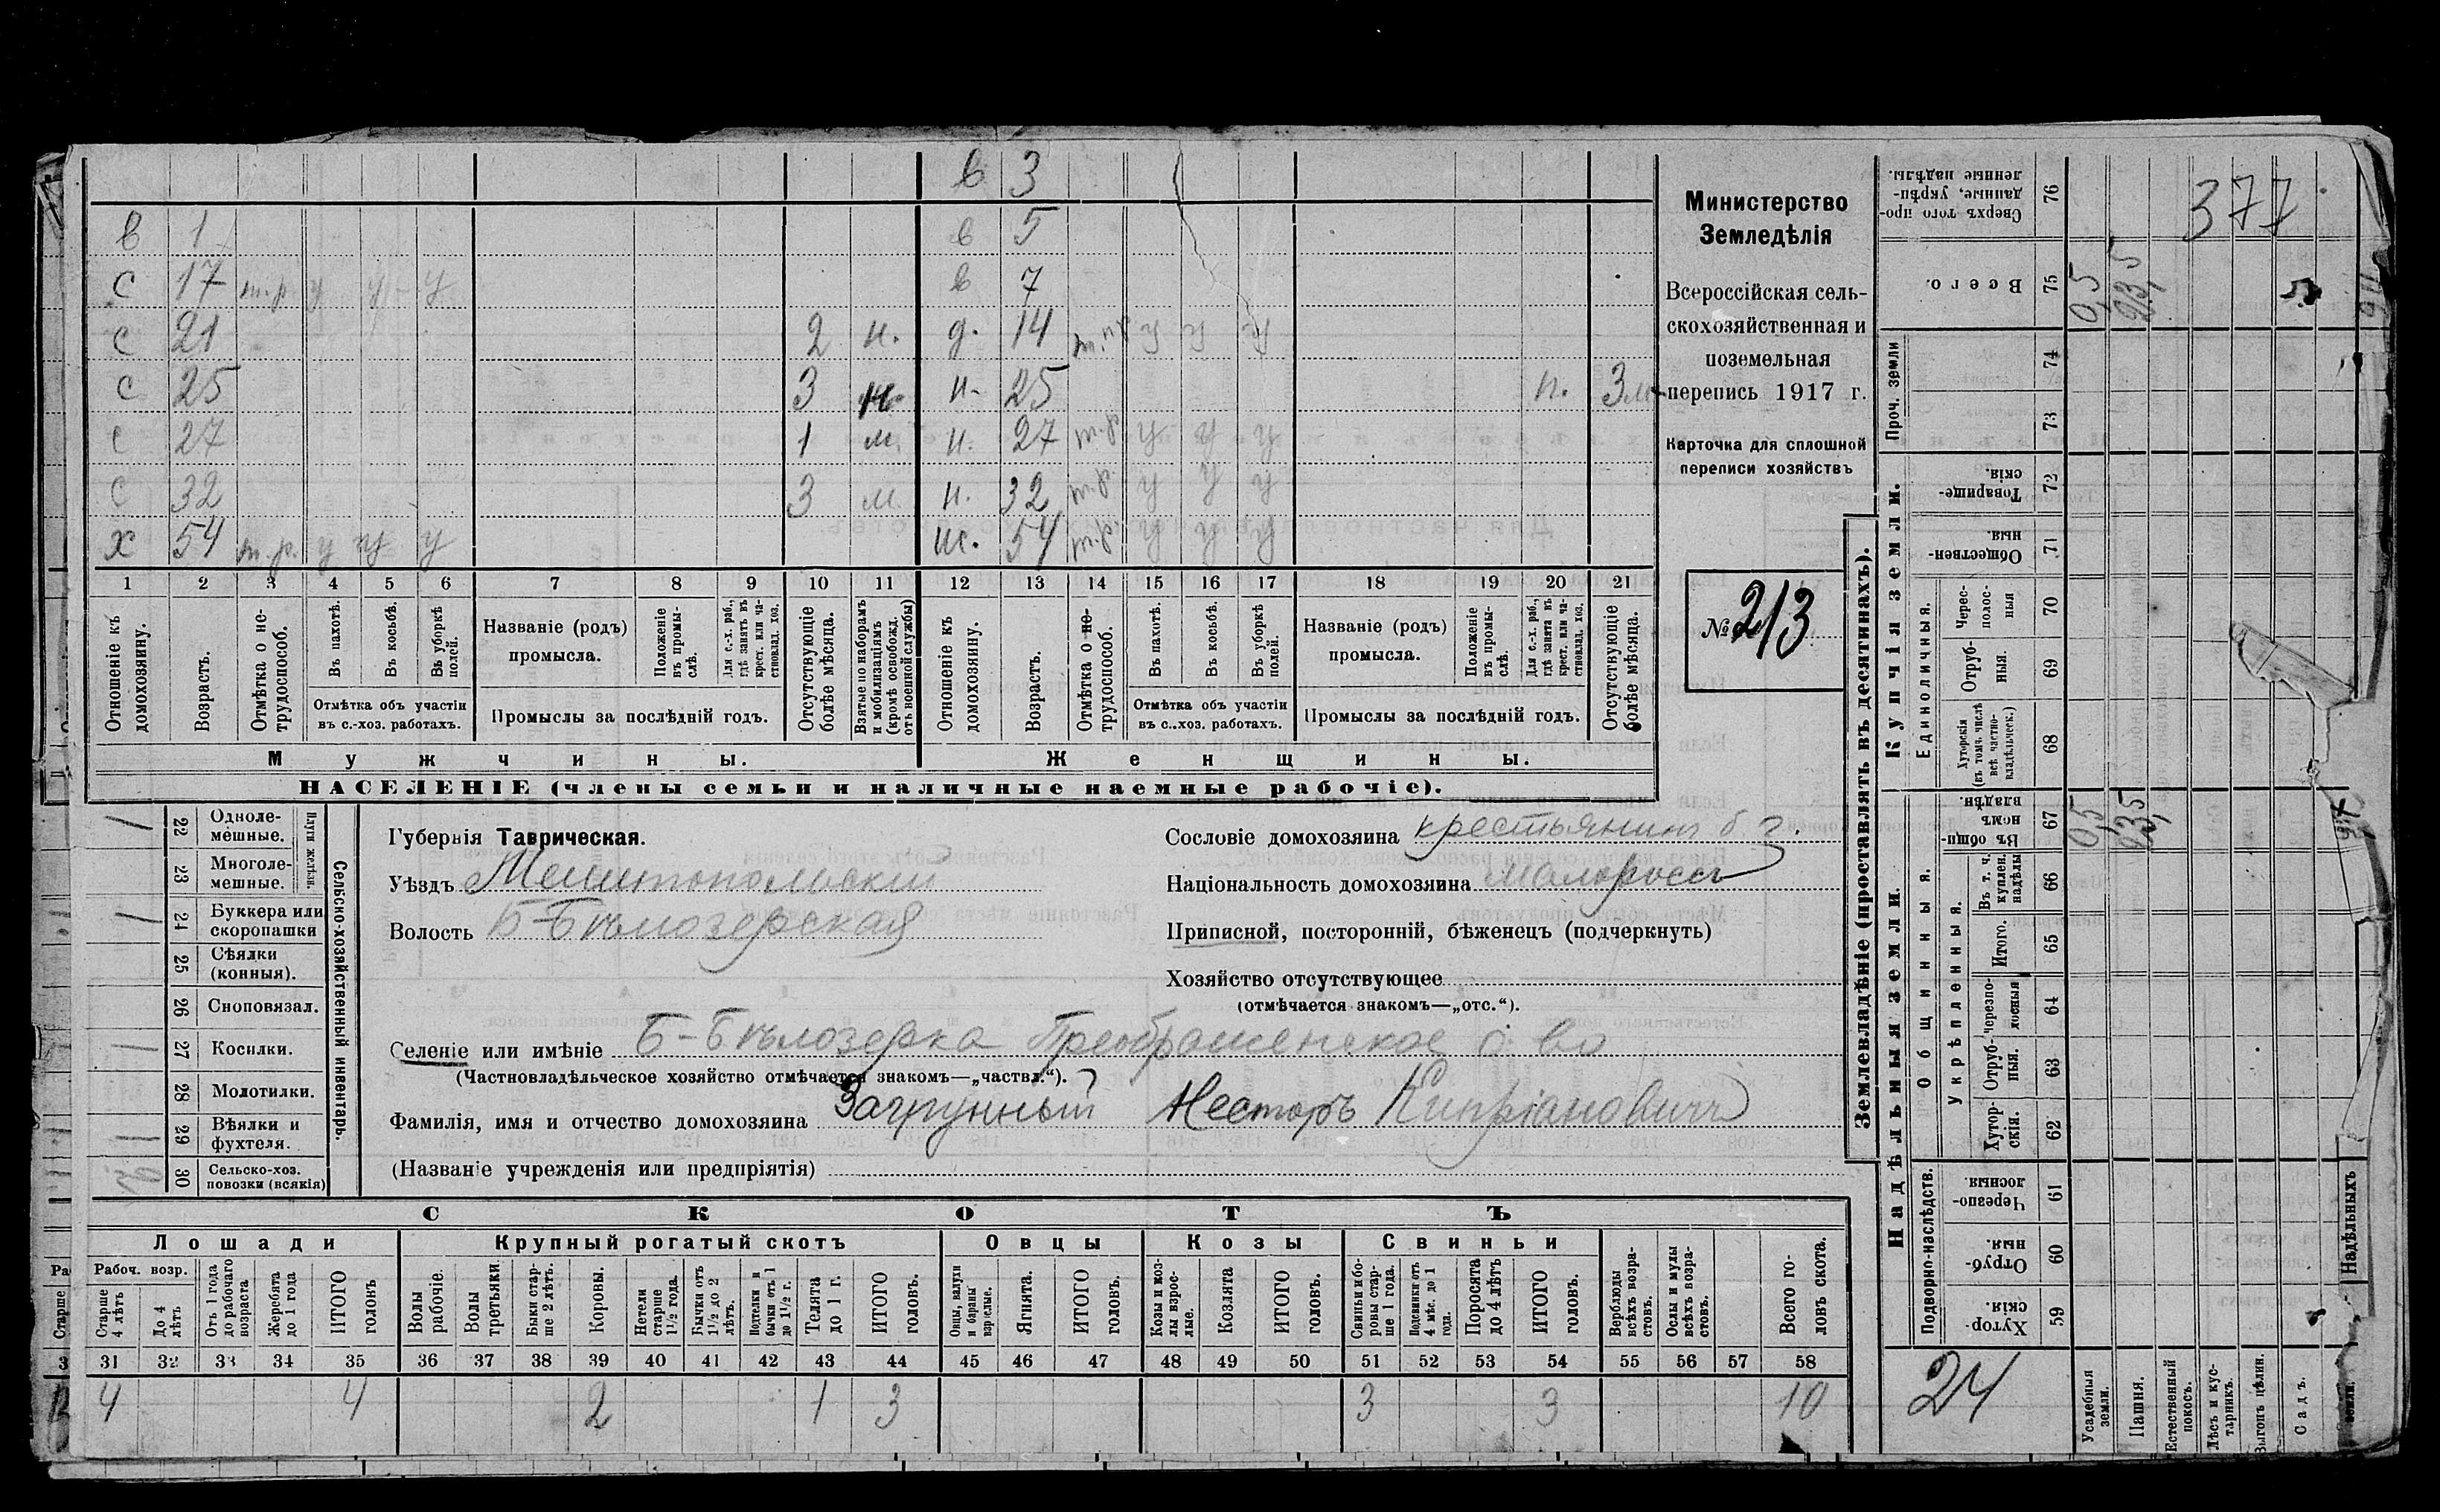 в 3
в 1 в 5
с 17 т.р. у у у в 7
с 21 2 н. д. 14 т.р. у у у
с 25 3 н. н. 25 п. 3 м
с 27 1 м. н. 27 т.р. у у у
с 32 3 м. н. 32 т.р. у у у
х 54 т.р. у у у ж. 54 т.р. у у у
1 2 3 4 5 6 7 8 9 10 11 12 13 14 15 16 17 18 19 20 21
Отношеніе къ домохозяину.
Возрастъ.
Отмѣтка о не-трудоспособ.
Въ пахотѣ.
Въ косьбѣ.
Въ уборкѣ полей.
Отмѣтка объ участіи
въ с.-хоз. работахъ.
Названіе (родъ)
промысла.
Положеніе въ промы-слѣ.
Для с.-х. раб., гдѣ занятъ въ крест. или ча-стновлад. хоз.
Промыслы за послѣдній годъ.
Отсутствующіе болѣе мѣсяца.
Взятые по наборамъ и мобилизаціямъ (кромѣ освобожд. отъ военной службы)
Отношеніе къ домохозяину.
Возрастъ.
Отмѣтка о не-трудоспособ.
Въ пахотѣ.
Въ косьбѣ.
Въ уборкѣ полей.
Отмѣтка объ участіи
въ с.-хоз. работахъ.
Названіе (родъ)
промысла.
Положеніе въ промы-слѣ.
Для с.-х. раб., гдѣ занята въ крест. или ча-стновлад. хоз.
Промыслы за послѣдній годъ.
Отсутствующіе болѣе мѣсяца.
Мужчины. Женщины.
НАСЕЛЕНІЕ (члены семьи и наличные наемные рабочіе).
Министерство
Земледѣлія
Всероссійская сель-
скохозяйственная и
поземельная
перепись 1917 г.
Карточка для сплошной
переписи хозяйствъ
№ 213
Сельско-хозяйственный инвентарь.
Плуги желѣзн.
1 22 Одноле-мешные.
23 Многоле-мешные.
1 24 Буккера или скоропашки
25 Сѣялки (конныя).
26 Сноповязал.
1 27 Косилки.
28 Молотилки.
1 29 Вѣялки и фухтеля.
30 Сельско-хоз. повозки (всякія)
Губернія Таврическая.
Уѣздъ Мелитопольскій
Волость Б-Бѣлозерская
Сословіе домохозяина крестьянинъ б г.
Національность домохозяина малороссъ
Приписной, посторонній, бѣженецъ (подчеркнуть)
Хозяйство отсутствующее
(отмѣчается знакомъ—„отс.“).
Селеніе или имѣніе Б-Бѣлозерка Преображенское о-во
(Частновладѣльческое хозяйство отмѣчается знакомъ—„частвл.“).
Фамилія, имя и отчество домохозяина Загрунный Несторъ Кипріановичъ
(Названіе учрежденія или предпріятія)
СКОТЪ
Лошади Крупный рогатый скотъ Овцы Козы Свиньи
Рабоч. возр.
Старше 4 лѣтъ
До 4 лѣтъ
Отъ 1 года до рабочаго возраста
Жеребята до 1 года
ИТОГО головъ
Волы рабочіе.
Волы третьяки.
Быки стар-ше 2 лѣтъ.
Коровы.
Нетели старше 1½ года.
Бычки отъ 1½ до 2 лѣтъ.
Подтелки и бычки отъ 1 до 1½ г.
Телята до 1 г.
ИТОГО головъ.
Овцы, валухи и бараны взрослые.
Ягнята.
ИТОГО головъ.
Козы и коз-лы взрос-лые.
Козлята
ИТОГО головъ.
Свиньи и бо-ровы стар-ше 1 года.
Подсвинки отъ 4 мѣс. до 1 года.
Поросята до 4 лѣтъ
ИТОГО головъ.
Верблюды всѣхъ возра-стовъ.
Ослы и мулы всѣхъ возра-стовъ.
Всего го-ловъ скота.
31 32 33 34 35 36 37 38 39 40 41 42 43 44 45 46 47 48 49 50 51 52 53 54 55 56 57 58
4 4 2 1 3 3 3 10
Землевладѣніе (проставлять въ десятинахъ).
Купчія земли.
Надѣльныя земли.
76 Сверхъ того про-данные, укрѣп-ленные надѣлы.
75 Всего. 0,5 23,5
Проч. земли
74
73
72 Товарище-скія.
71 Обществен-ныя.
Единоличныя.
70 Черес-полос-ныя
69 Отруб-ныя.
68 Хуторскія (въ томъ числѣ всѣ частно-владѣльческ.)
Общинныя.
67 Въ общи-номъ владѣн. 0,5 23,5
66 Въ т. ч. куплен. надѣлы
Укрѣпленныя.
65 Итого.
64 Черезпо-лосныя
63 Отруб-ныя.
62 Хутор-скія.
Подворно-наслѣдств.
61 Черезпо-лосныя.
60 Отруб-ныя.
59 Хутор-скія.
24
Усадебныя земли.
Пашня.
Естественный покосъ.
Лѣсъ и кус-тарникъ.
Выгонъ цѣлин.
Садъ.
377
Надѣльныхъ